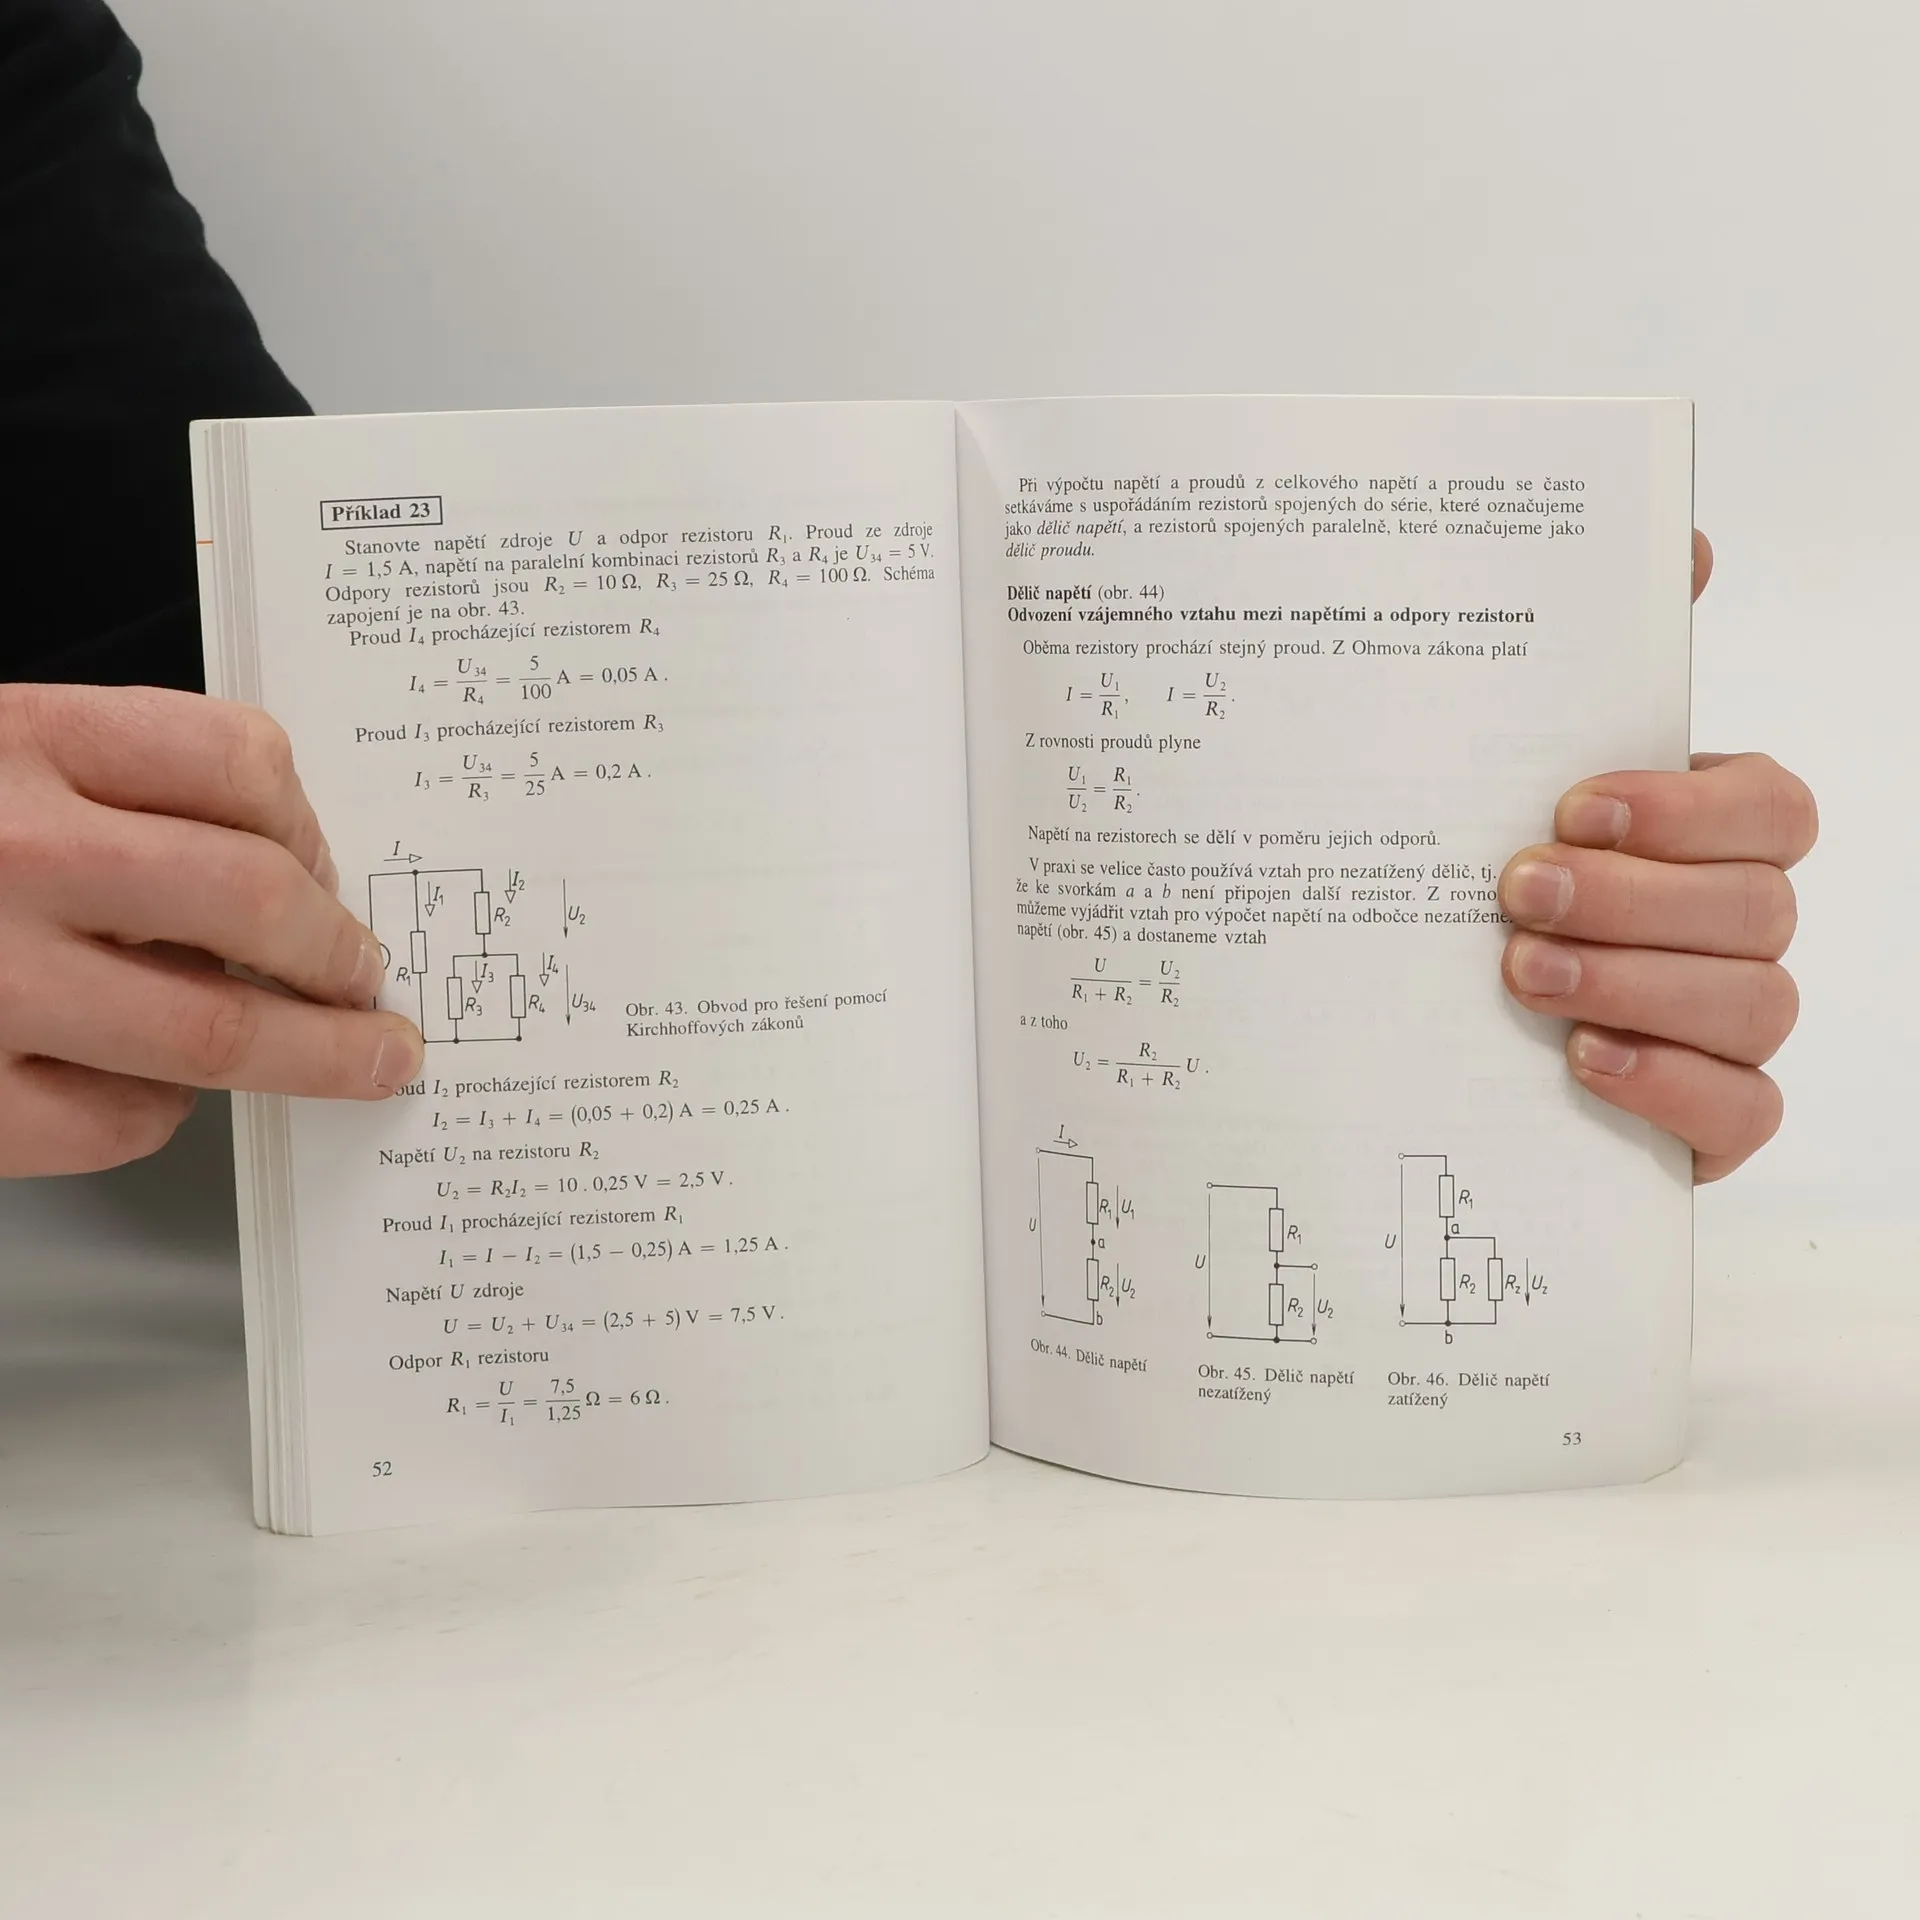 Příklad 23
Stanovte napětí zdroje U a odpor rezistoru R₁. Proud ze zdroje
I = 1,5 A, napětí na paralelní kombinaci rezistorů R₃ a R₄ je U₃₄ = 5 V.
Odpory rezistorů jsou R₂ = 10 Ω, R₃ = 25 Ω, R₄ = 100 Ω. Schéma
zapojení je na obr. 43.
Proud I₄ procházející rezistorem R₄
I₄ = U₃₄/R₄ = 5/100 A = 0,05 A .
Proud I₃ procházející rezistorem R₃
I₃ = U₃₄/R₃ = 5/25 A = 0,2 A .
I
I₁
I₂
R₂
U₂
R₁
I₃
R₃
I₄
R₄
U₃₄
Obr. 43. Obvod pro řešení pomocí
Kirchhoffových zákonů
I₂ procházející rezistorem R₂
I₂ = I₃ + I₄ = (0,05 + 0,2) A = 0,25 A .
Napětí U₂ na rezistoru R₂
U₂ = R₂I₂ = 10 . 0,25 V = 2,5 V .
Proud I₁ procházející rezistorem R₁
I₁ = I − I₂ = (1,5 − 0,25) A = 1,25 A .
Napětí U zdroje
U = U₂ + U₃₄ = (2,5 + 5) V = 7,5 V .
Odpor R₁ rezistoru
R₁ = U/I₁ = 7,5/1,25 Ω = 6 Ω .
52
Při výpočtu napětí a proudů z celkového napětí a proudu se často
setkáváme s uspořádáním rezistorů spojených do série, které označujeme
jako dělič napětí, a rezistorů spojených paralelně, které označujeme jako
dělič proudu.
Dělič napětí (obr. 44)
Odvození vzájemného vztahu mezi napětími a odpory rezistorů
Oběma rezistory prochází stejný proud. Z Ohmova zákona platí
I = U₁/R₁ , I = U₂/R₂ .
Z rovnosti proudů plyne
U₁/U₂ = R₁/R₂ .
Napětí na rezistorech se dělí v poměru jejich odporů.
V praxi se velice často používá vztah pro nezatížený dělič, tj.
že ke svorkám a a b není připojen další rezistor. Z
můžeme vyjádřit vztah pro výpočet napětí na odbočce
napětí (obr. 45) a dostaneme vztah
U/(R₁ + R₂) = U₂/R₂
a z toho
U₂ = R₂/(R₁ + R₂) U .
I
U
R₁
U₁
a
R₂
U₂
b
Obr. 44. Dělič napětí
U
R₁
R₂
U₂
Obr. 45. Dělič napětí
nezatížený
U
R₁
a
R₂
R_z
U_z
b
Obr. 46. Dělič napětí
zatížený
53